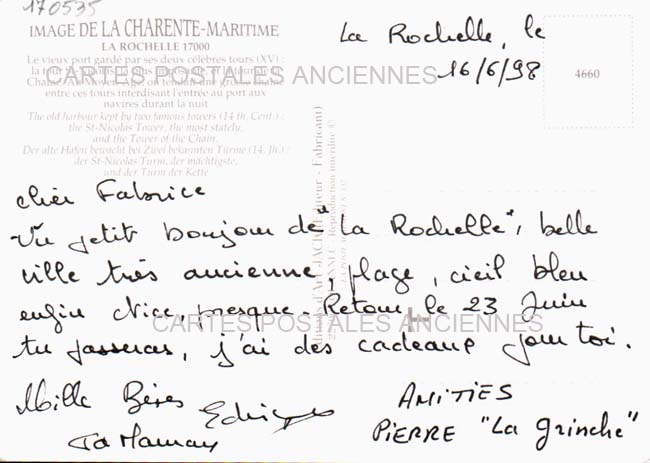 170535
IMAGE DE LA CHARENTE-MARITIME
LA ROCHELLE 17000
Le vieux port gardé par ses deux célèbres tours (XV) :
entre ces tours interdisant l'entrée au port aux
navires durant la nuit
The old harbour kept by two famous towers (14 th. Cent.) :
the St-Nicolas Tower, the most stately,
and the Tower of the Chain.
Der alte Hafen bewacht bei Zwei bekannten Türme (14. Jh.) :
der St-Nicolas Turm, der mächtigste,
und der Turm der Kette
CARTES POSTALES ANCIENNES
La Rochelle, le
16/6/98
4660
cher Fabrice
Un petit bonjour de "La Rochelle", belle
ville très ancienne, plage, cieil bleu
enfin Nice, presque. Retour le 23 Juin
CARTES POSTALES ANCIENNES
tu passeras, j'ai des cadeaux pour toi.
Mille Bises
Ta Maman
AMITIES
PIERRE "La grinche"